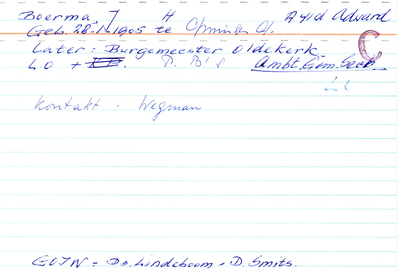 Boerma, J H A 41d Advard
Geb. 28.1.1905 te Opmiden Gr.
Later: Burgemeester Oldekerk
LO + P. B's Ambt. Gem. Secr.
C
Kontakt: Wegman
= Ds. Lindeboom - D. Smits.